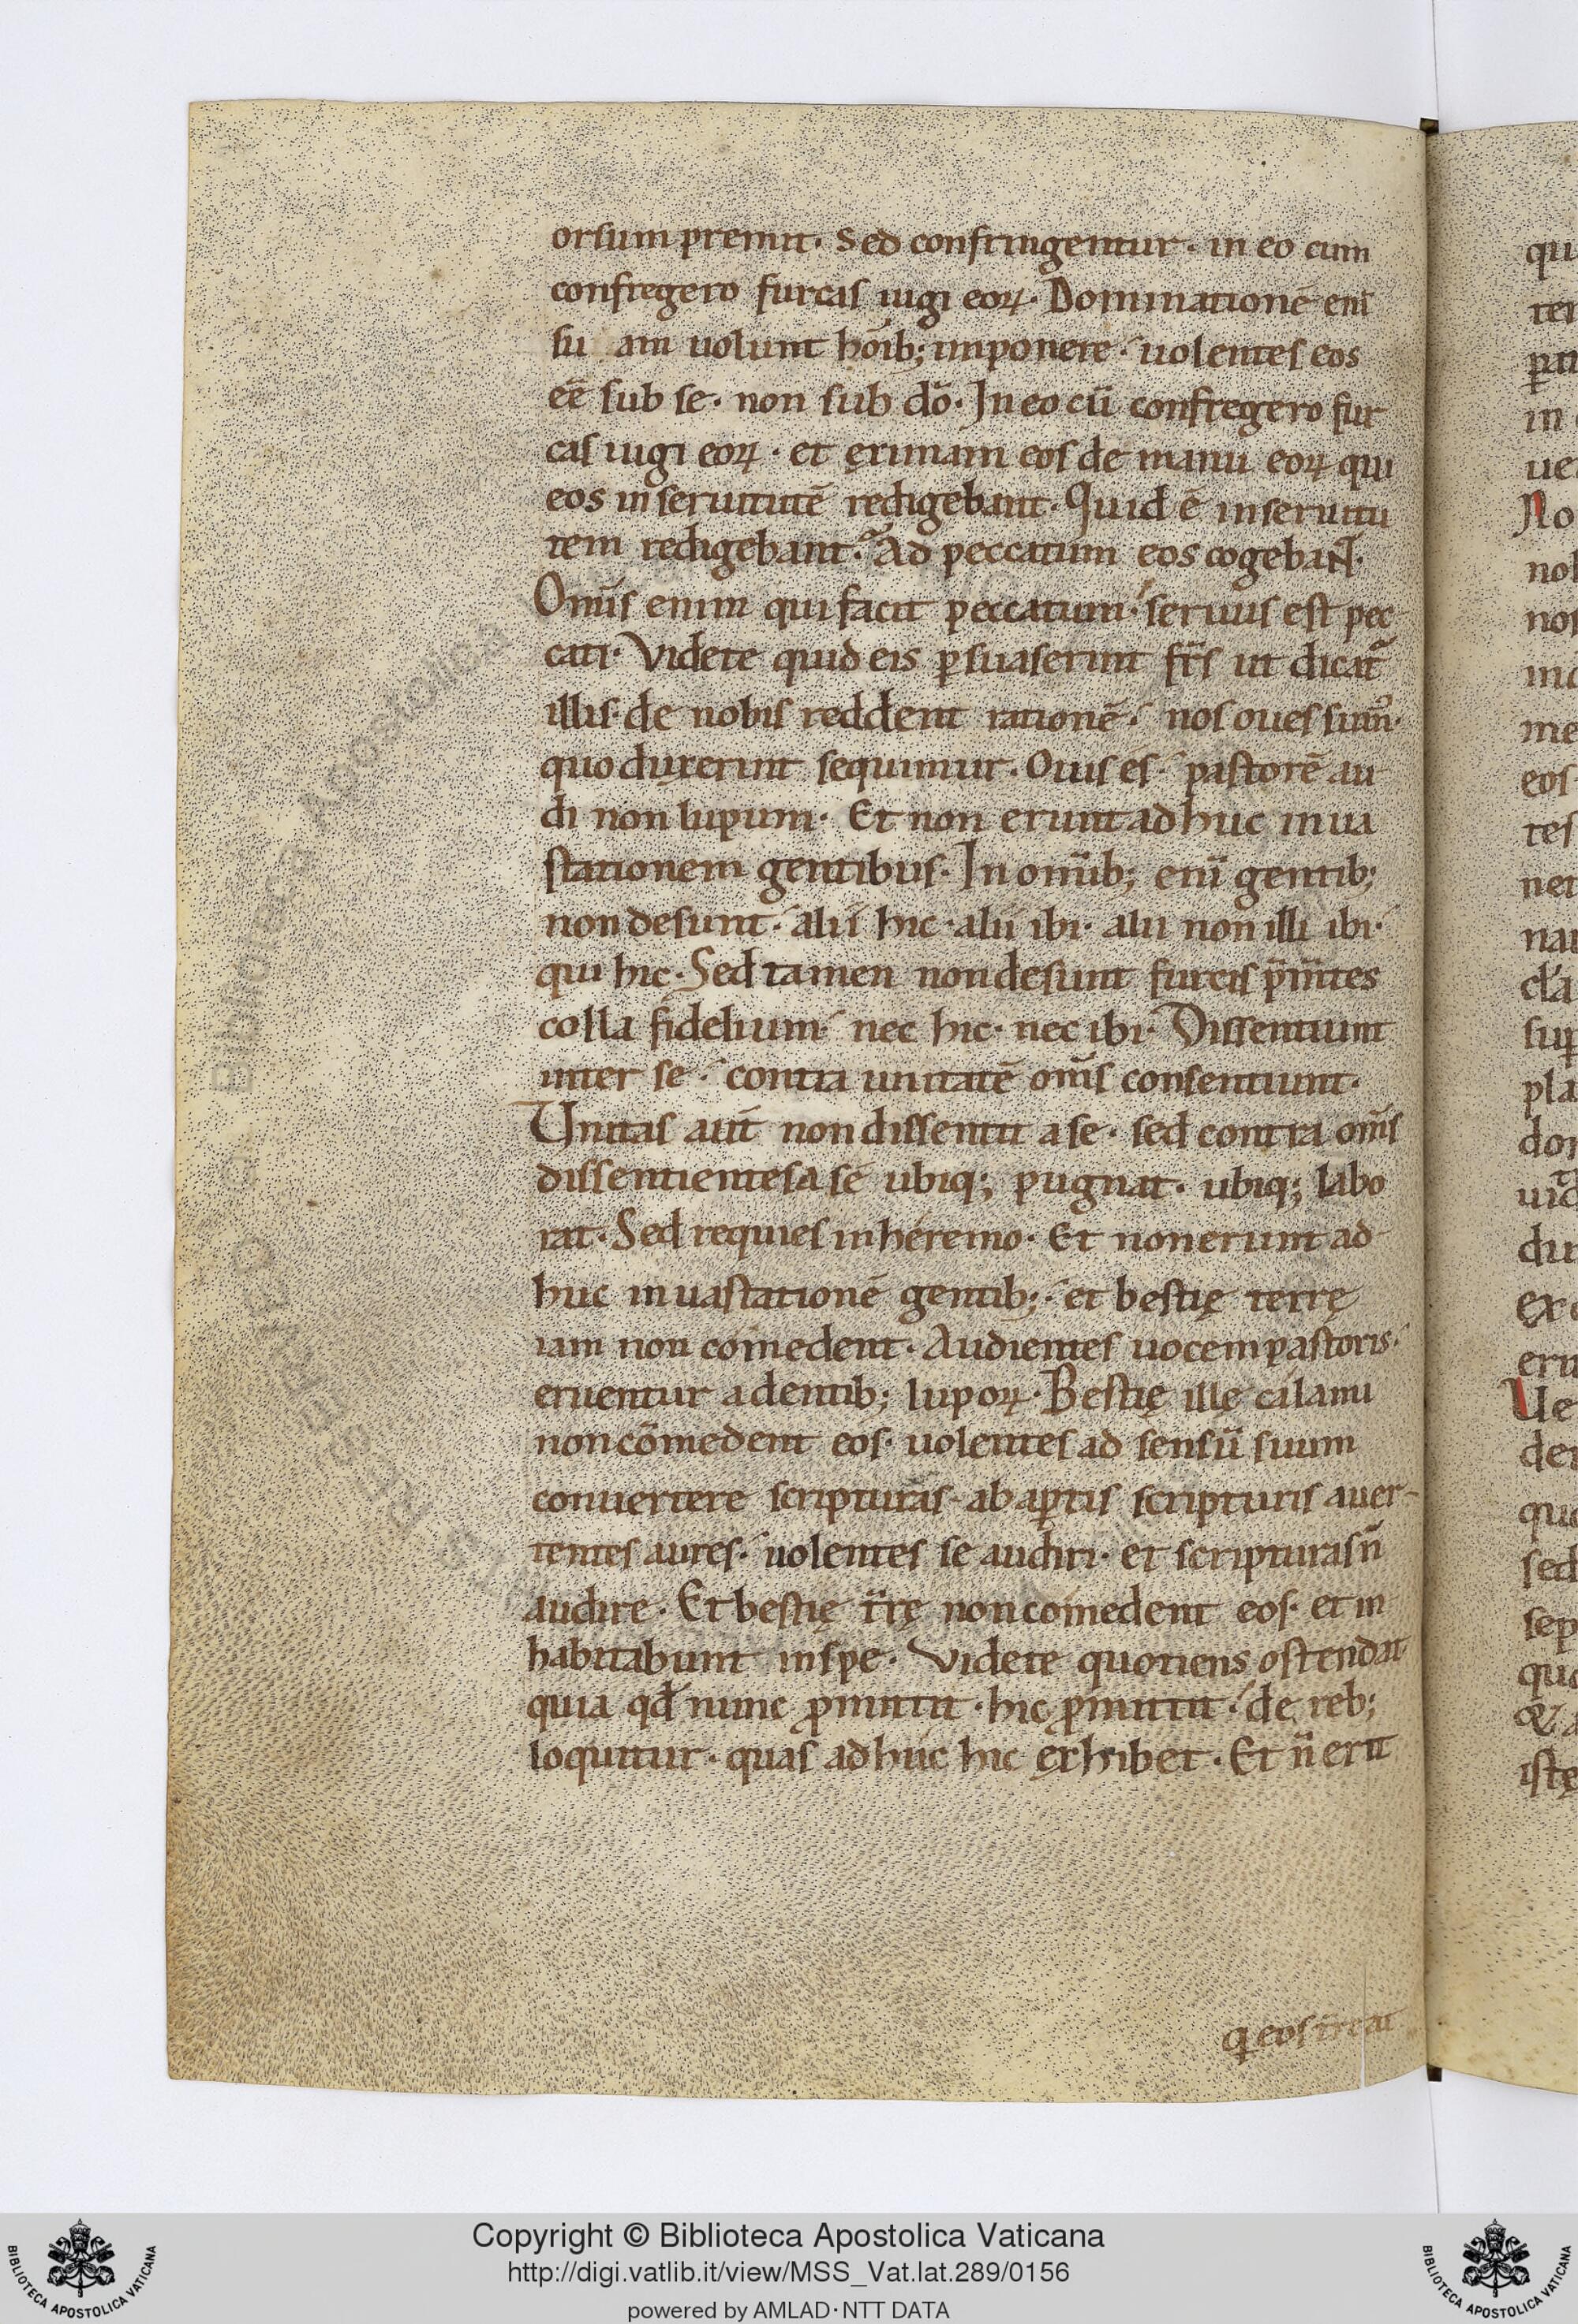 orsum premit. Sed confringentur. in eo cum
confregero furcas iugi eoꝝ. Dominationē eni
su am uolunt hōib; imponere. uolentes eos
eē sub se. non sub dō. In eo cū confregero fur
cas iugi eoꝝ. et eximam eos de manu eoꝝ qui
eos in seruitutē redigebant. Quid ē in seruitu
tem redigebant. Ad peccatum eos cogebant.
Om̄s enim qui facit peccatum. seruus est pec
cati. Videte quid eis ꝑsuaserint fr̄s ut dicat̄
illis. de nobis reddent rationē. nos oues sum᷒.
quo duxerint sequimur. Ouis es. pastorē au
di non lupum. Et non erunt adhuc in ua
stationem gentibus. In omīb; enī gentib;
non desunt. alii hic. alii ibi. alii non illi ibi.
qui hic. Sed tamen non desunt furcis p̄m̄tes
colla fidelium. nec hic. nec ibi. Dissentiunt
inter se. contra unitatē om̄s consentiunt.
Unitas aut̄ non dissentit a se. sed contra om̄s
dissentientes a se ubiq; pugnat. ubiq; labo
rat. Sed requies in heremo. Et non erunt ad
huc in uastationē gentib;. et bestię terrę
iam non comedent. Audientes uocem pastoris.
eruentur a dentib; lupoꝝ. Bestię illę calami
non cōmedent eos. uolentes ad sensū suum
conuertere scripturas. ab aꝑtis scripturis auer-
tentes aures. uolentes se audiri. et scripturas n̄
audire. Et bestię t̄rę non comedent eos. et in
habitabunt in spe. Videte quotiens ostendat
quia qđ nunc ꝓmittit. hic ꝓmittit. de reb;
loquitur. quas adhuc hic exhibet. Et n̄ erit
Copyright © Biblioteca Apostolica Vaticana
http://digi.vatlib.it/view/MSS_Vat.lat.289/0156
powered by AMLAD·NTT DATA
BIBLIOTECA APOSTOLICA VATICANA
BIBLIOTECA APOSTOLICA VATICANA